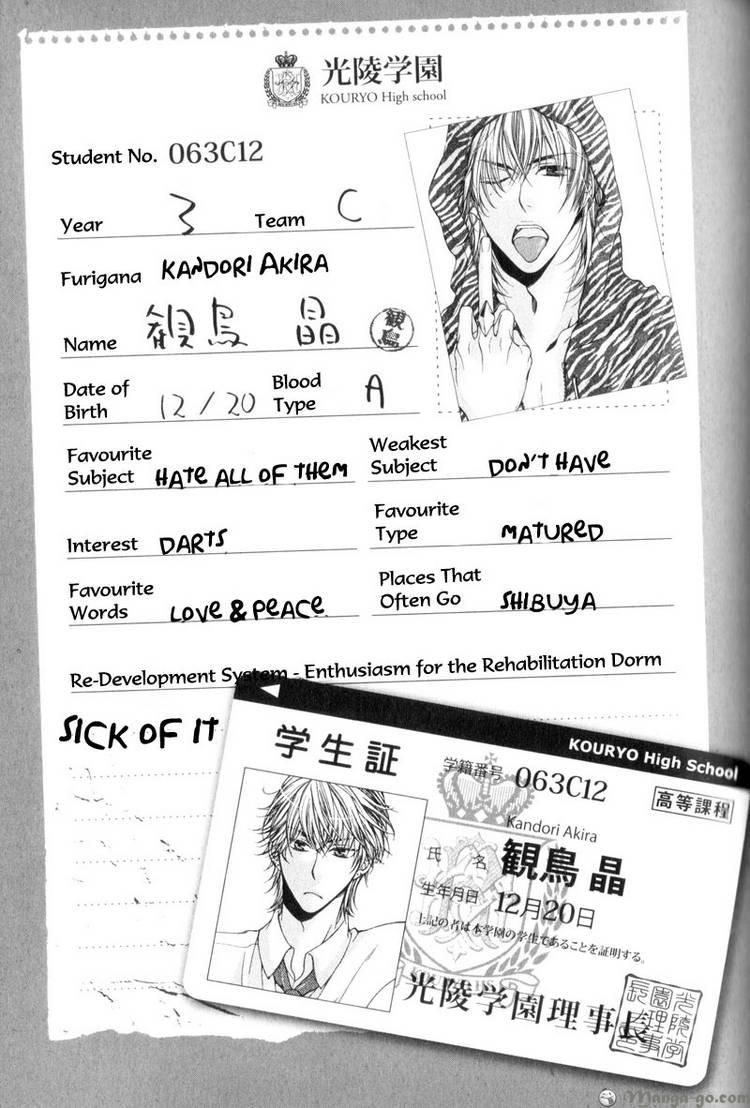 光陵学園
KOURYO High school
Student No. 063C12
Year 3 Team C
Furigana KANDORI AKIRA
Name 観鳥 晶 観鳥
Date of Birth 12/20 Blood Type A
Favourite Subject HATE ALL OF THEM
Weakest Subject DON'T HAVE
Interest DARTS
Favourite Type MATURED
Favourite Words LOVE & PEACE
Places That Often Go SHIBUYA
Re-Development System - Enthusiasm for the Rehabilitation Dorm
SICK OF IT
KOURYO High School
学生証
学籍番号 063C12
高等課程
Kandori Akira
氏 名 観鳥 晶
生年月日 12月20日
上記の者は本学園の学生であることを証明する。
光陵学園理事長
Manga-go.com